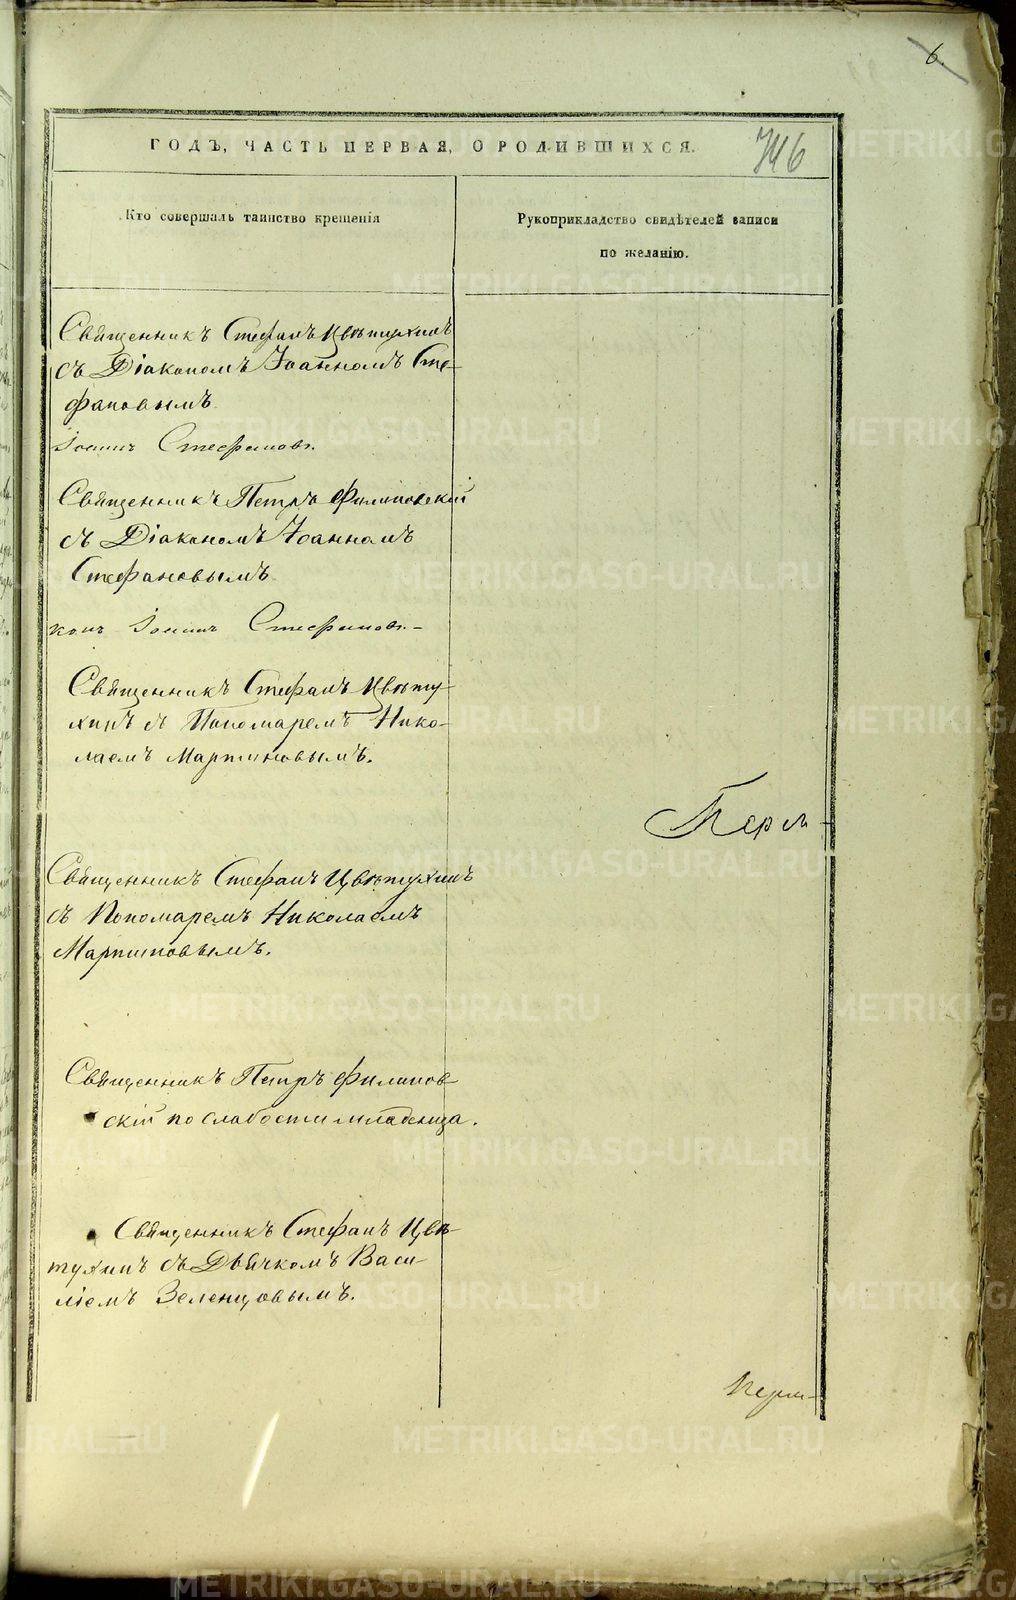 6.
746
ГОДЪ, ЧАСТЬ ПЕРВАЯ, О РОДИВШИХСЯ.
Кто совершалъ таинство крещенія
Рукоприкладство свидѣтелей записи
по желанію.
Священникъ Стефанъ Цвѣтухинъ
съ Діакономъ Іоанномъ Сте-
фановымъ
Іоаннъ Стефановъ.
Священникъ Петръ Филиповскій
съ Діакономъ Іоанномъ
Стефановымъ
конъ Іоаннъ Стефановъ
Священникъ Стефанъ Цвѣту-
хинъ съ Пономаремъ Нико-
лаемъ Мартиновымъ.
Перм-
Священникъ Стефанъ Цвѣтухинъ
съ Пономаремъ Николаемъ
Мартиновымъ.
Священникъ Петръ Филипов
скій по слабости младенца.
Священникъ Стефанъ Цвѣ-
тухинъ съ Дьячкомъ Васи-
ліемъ Зеленцовымъ.
METRIKI.GASO-URAL.RU